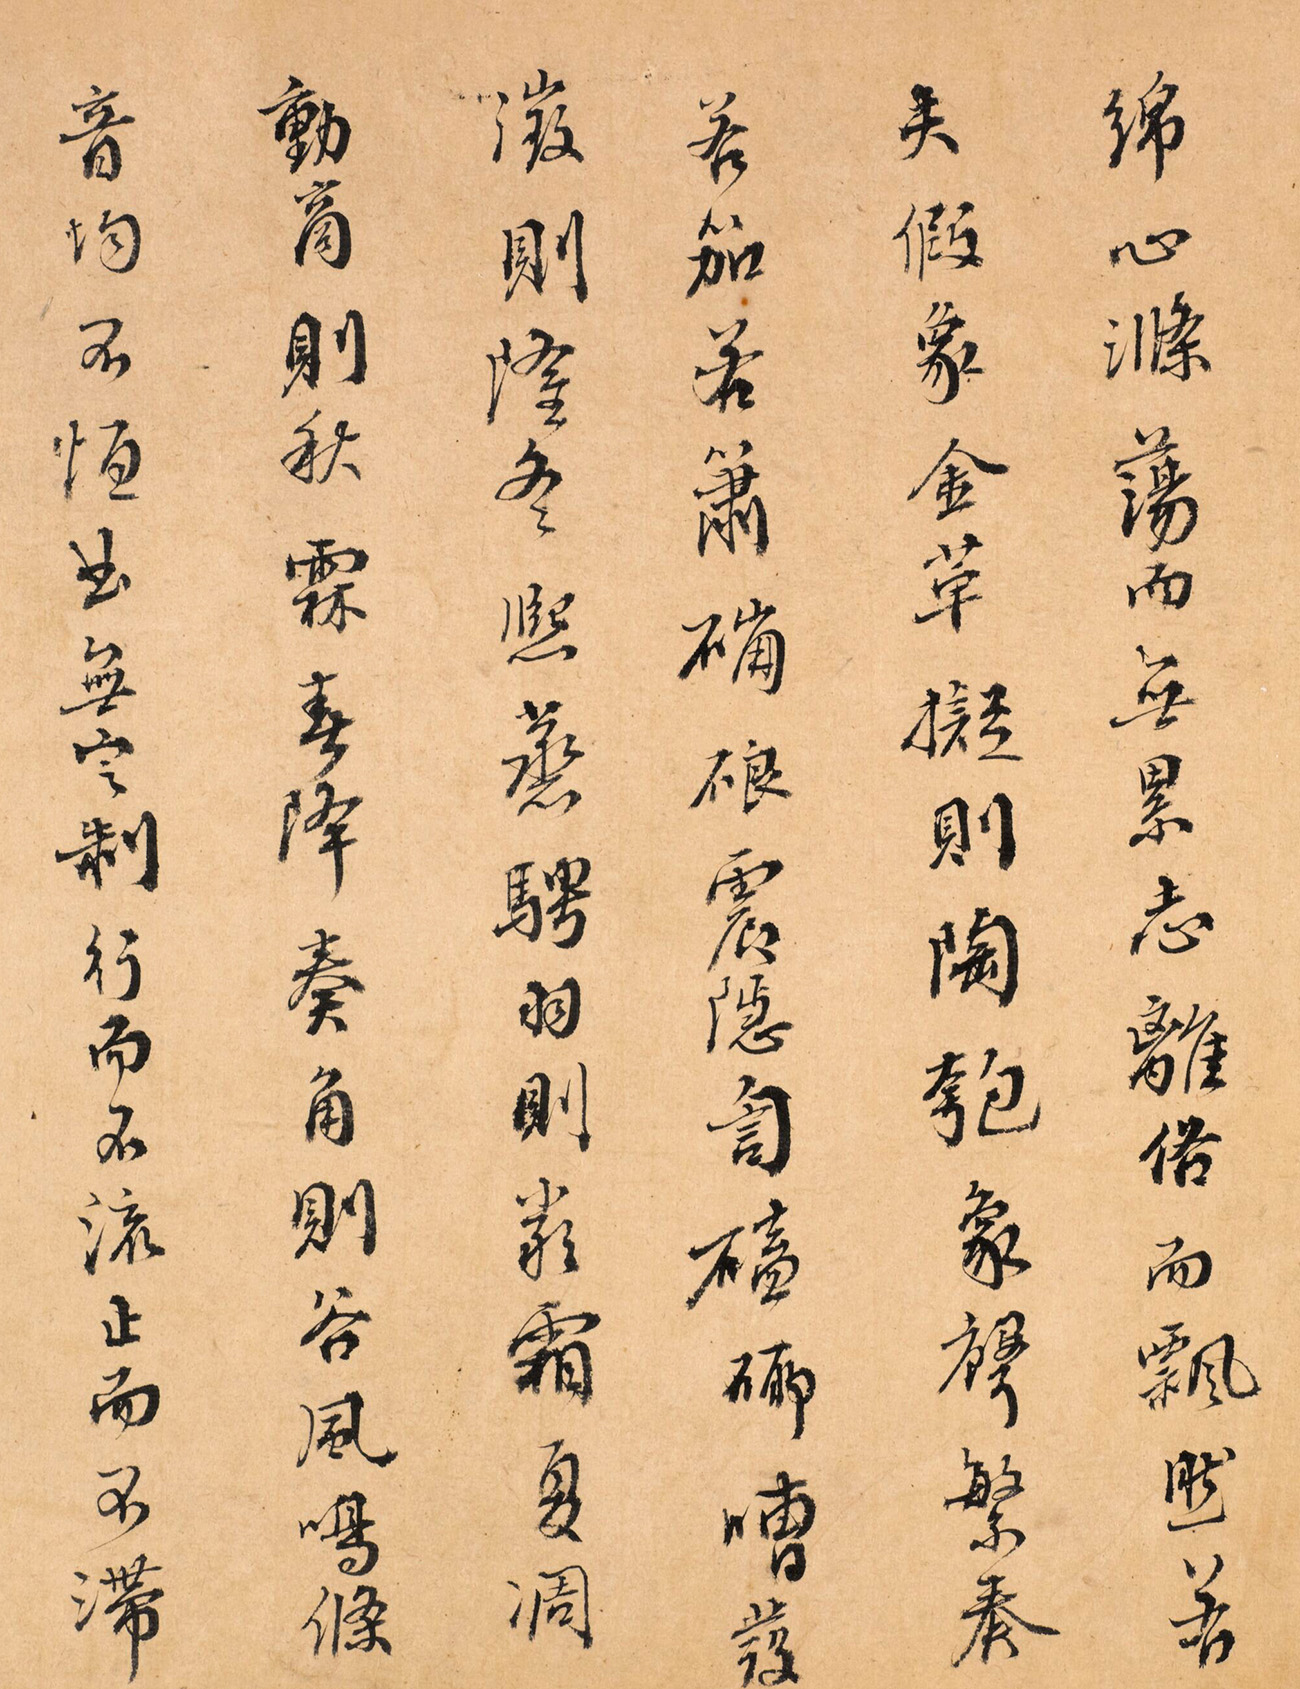 綿心滌蕩而無累志離俗而飄然若
夫假象金革擬則陶匏象聲繁奏
若笳若簫硼硠震隱訇磕䃧嘈發
徵則隆冬熙蒸騁羽則嚴霜夏凋
動商則秋霖春降奏角則谷風鳴條
音均不恒曲無定制行而不流止而不滯